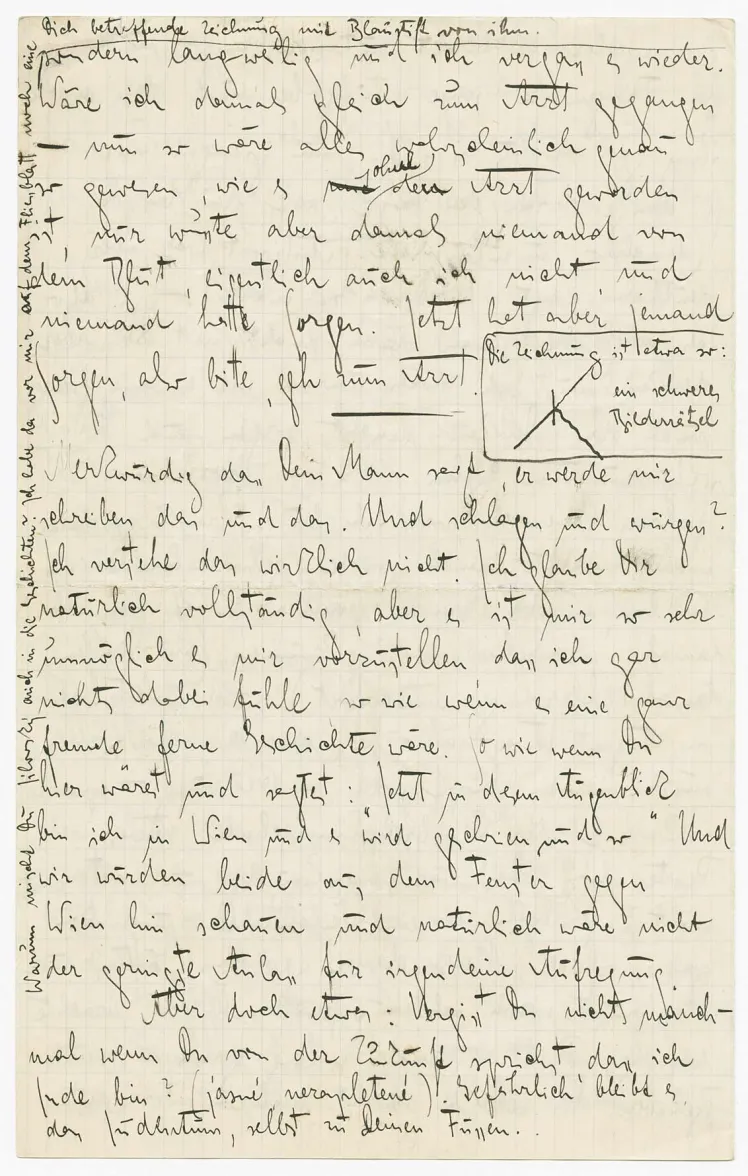 Warum mischst Du Jílovský auch in die Geschichten? Ich habe da vor mir auf dem Fliessblatt noch eine
Dich betreffende Zeichnung mit Blaustift von ihm.
sondern langweilig und ich vergass es wieder.
Wäre ich damals gleich zum Arzt gegangen
– nun so wäre alles wahrscheinlich genau
so gewesen, wie es ohne Arzt geworden
ist, nur wusste aber damals niemand von
dem Blut, eigentlich auch ich nicht, und
niemand hatte Sorgen. Jetzt hat aber jemand
Sorgen, also bitte, geh zum Arzt.
Die Zeichnung ist etwa so:
ein schweres
Bilderrätsel
Merkwürdig dass Dein Mann sagt, er werde mir
schreiben das und das. Und schlagen und würgen?
Ich verstehe das wirklich nicht. Ich glaube Dir
natürlich vollständig, aber es ist mir so sehr
unmöglich es mir vorzustellen dass ich gar
nichts dabei fühle so wie wenn es eine ganz
fremde ferne Geschichte wäre. So wie wenn Du
hier wärest und sagtest: "Jetzt in diesem Augenblick
bin ich in Wien und es wird geschrien und so" Und
wir würden beide aus dem Fenster gegen
Wien hin schauen und natürlich wäre nicht
der geringste Anlass für irgendeine Aufregung.
Aber doch etwas: Vergisst Du nicht manch-
mal wenn Du von der Zukunft sprichst, dass ich
Jude bin? (jasné nezapletené). Gefährlich bleibt es,
das Judentum, selbst zu Deinen Füssen.